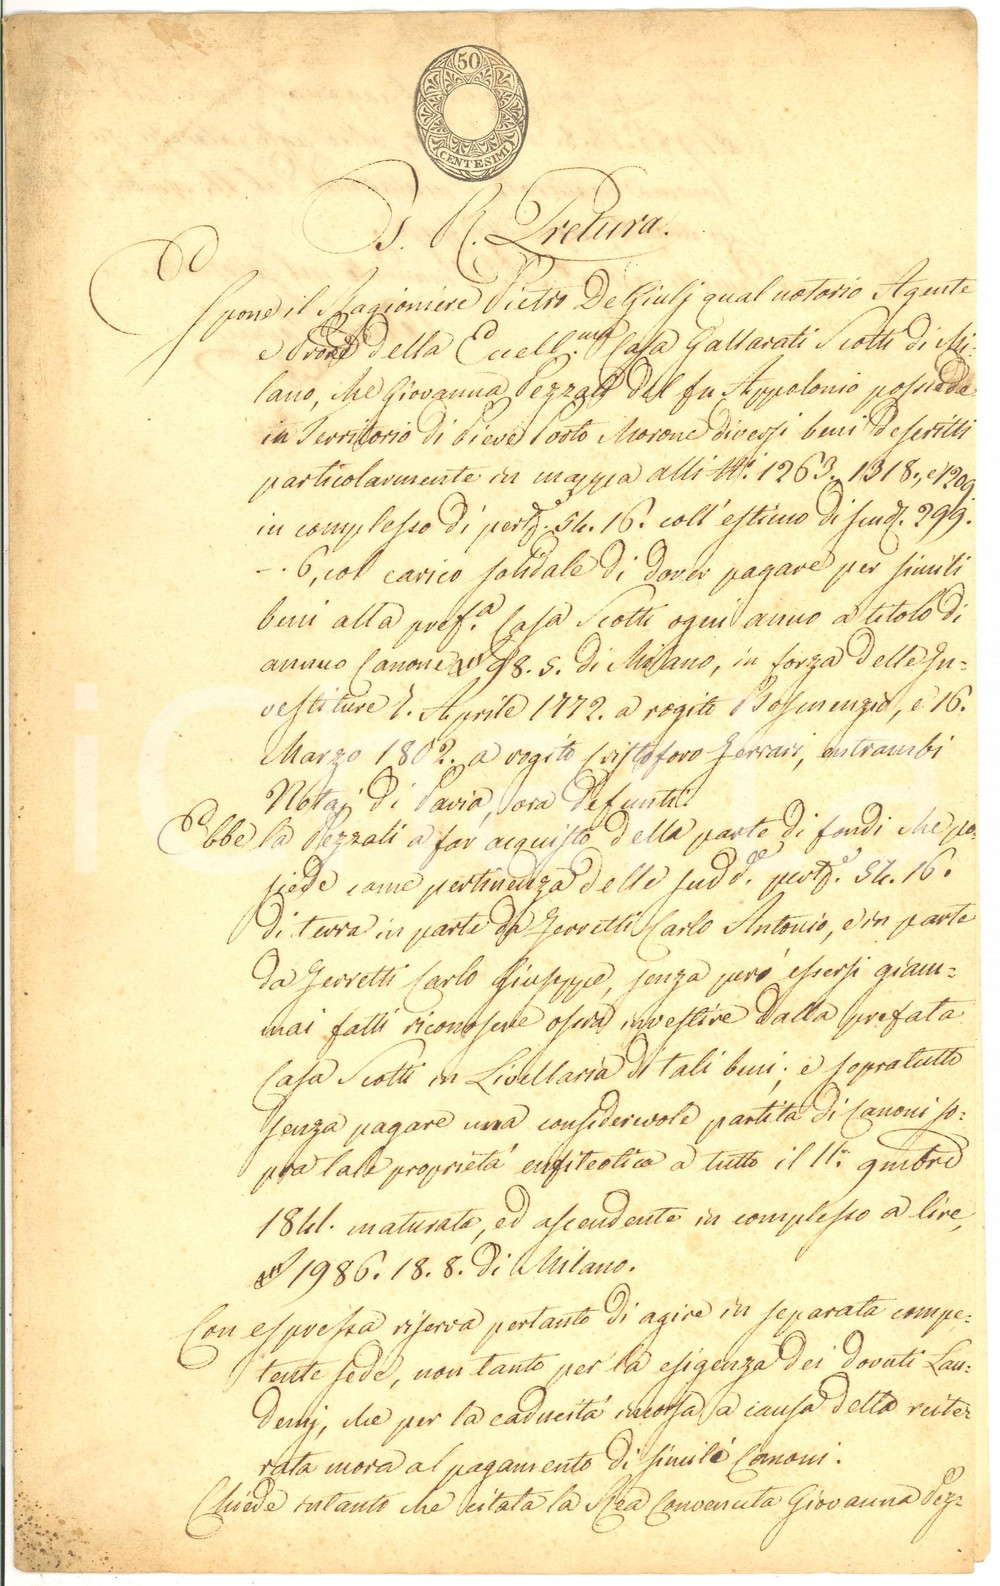 50
CENTESIMI
I. R. Pretura.
Espone il Ragioniere Pietro De Giulj qual notorio Agente
e Procᵉ della Eccell.ma Casa Gallarati Scotti di Mi-
lano, che Giovanna Pezzati del fu Appolonio possiede
in Territorio di Pieve Porto Morone diversi beni descritti
particolarmente in mappa alli Nⁱ. 1263. 1318., e 1209
in complesso di pert.e 54. 16. coll'estimo di scud. 299.
-. 6, col carico solidale di dover pagare per simili
beni alla pref.a Casa Scotti ogni anno a titolo di
annuo Canone 98. 5. di Milano, in forza delle In-
vestiture 7. Aprile 1772. a rogito, e 16.
Marzo 1802. a rogito Cristoforo Ferrari, entrambi
Notaj di Pavia, ora defunti.
Ebbe la Pezzati a far acquisto della parte di fondi che pos-
siede come pertinenza delle sudd.e pert.e 54. 16.
di terra in parte da Ferretti Carlo Antonio, e in parte
da Ferretti Carlo Giuseppe, senza però essersi giam-
mai fatti riconoscere ossia investire dalla prefata
Casa Scotti in Livellaria di tali beni; e sopratutto
senza pagare una considerevole partita di Canoni so-
pra tale proprietà enfiteotica a tutto il 11. 9mbre
1841. maturata, ed ascendente in complesso a lire,
1986. 18. 8. di Milano.
Con espressa riserva pertanto di agire in separata compe-
tente sede, non tanto per la esigenza dei dovuti Lau-
demj, che per la caducità incorsa a causa della reite-
rata mora al pagamento di simili Canoni.
Chiede intanto che citata la Rea Convenuta Giovanna Pez-